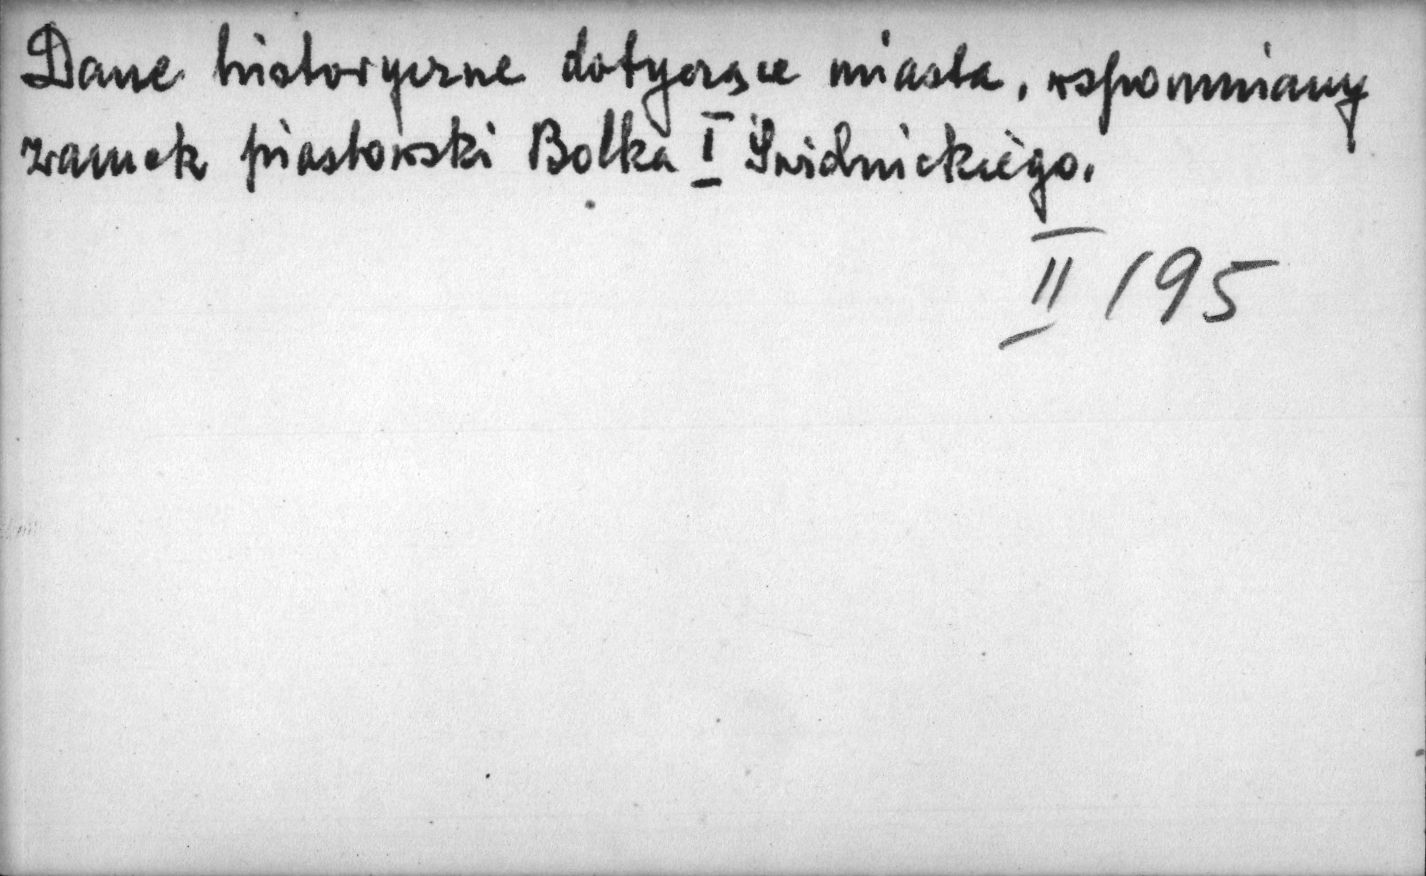 Dane historyczne dotyczące miasta, wspomniany
zamek piastowski Bolka I Świdnickiego.
II 195